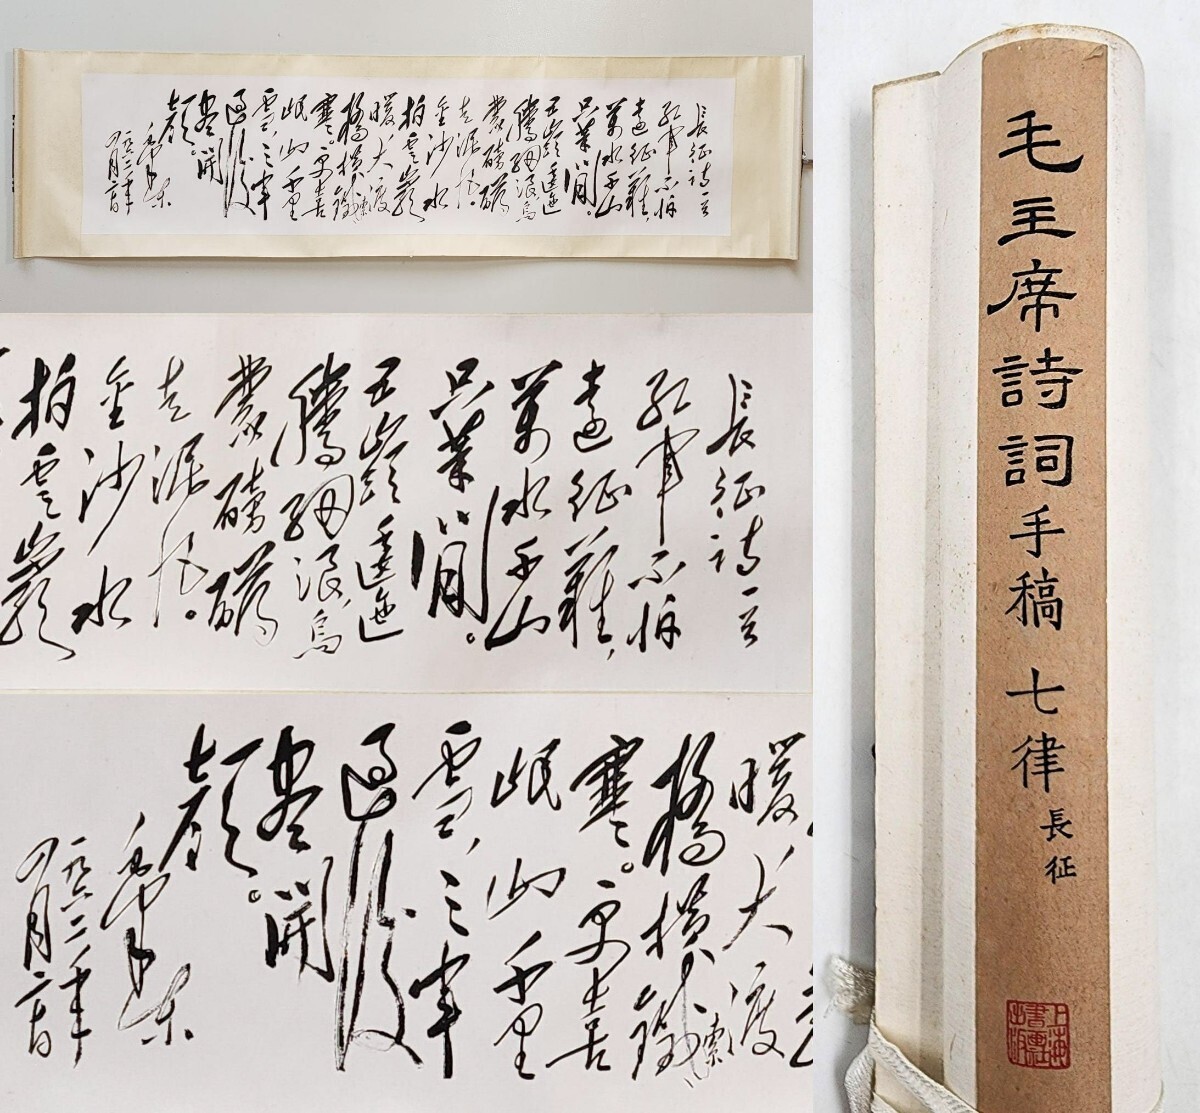 長征詩一首
紅軍不怕
遠征難,
萬水千山
只等閒。
五嶺逶迤
騰細浪,烏
蒙磅礴
走泥丸。
金沙水
拍雲巖
暖,大渡
橋橫鐵索
寒。更喜
岷山千里
雪,三軍
過後
盡開
顏。
毛澤東
一九六二年
四月二十日
長征詩一首
紅軍不怕
遠征難,
萬水千山
只等閒。
五嶺逶迤
騰細浪,烏
蒙磅礴
走泥丸。
金沙水
拍雲巖
暖,大渡
橋橫鐵索
寒。更喜
岷山千里
雪,三軍
過後
盡開
顏。
毛澤東
一九六二年
四月二十日
毛主席詩詞手稿 七律 長征
上海
書畫社
出版